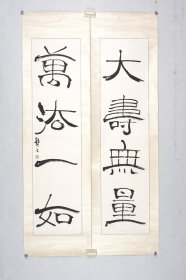 大壽無量
萬法一如